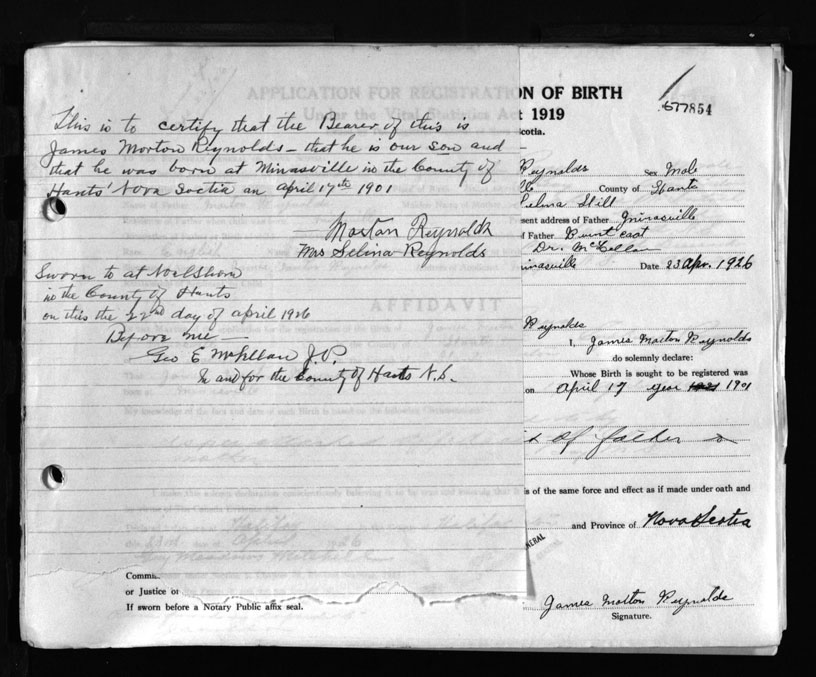 This is to certify that the Bearer of this is
James Morton Reynolds – that he is our son and
that he was born at Minasville in the County of
Hants' Nova Soctia an April 17th 1901
Morton Reynolds
Mrs Selina Reynolds
Sworn to at Noel Shore
in the County of Hants
on this the 22nd day of April 1926
Before me –
Geo E McLellan J.P.
In and for the County of Hants N.S.
Commi
or Justice or
If sworn before a Notary Public affix seal.
ON OF BIRTH
1919
cotia.
677854
Reynolds Sex Male
County of Hants
Selma Still
sent address of Father Minasville
f Father Burntcoat
Dr. McLellan
inasville Date 23 Apr. 1926
Reynolds
I, James Morton Reynolds
do solemnly declare:
Whose Birth is sought to be registered was
on April 17 year 1901
of father &
is of the same force and effect as if made under oath and
and Province of Nova Scotia
NERAL
James Morton Reynolds
Signature.